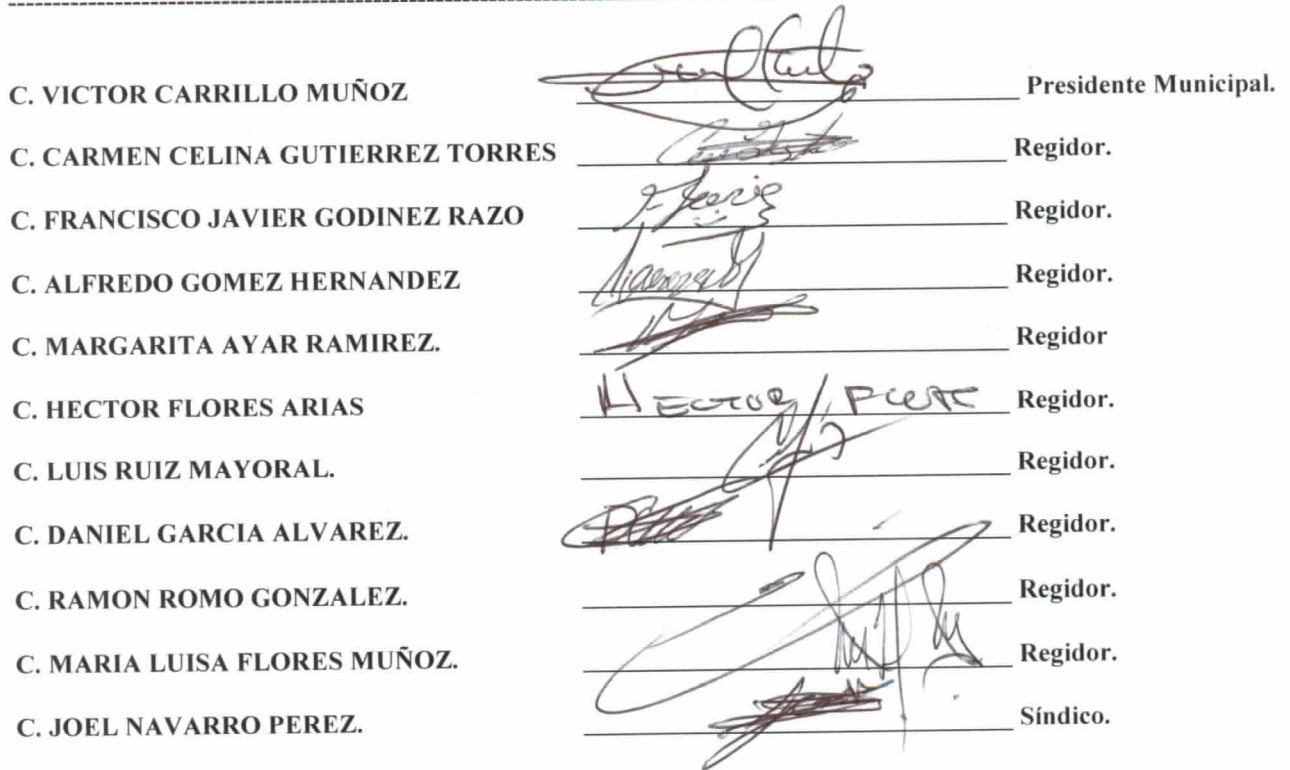 C. VICTOR CARRILLO MUÑOZ Presidente Municipal.
C. CARMEN CELINA GUTIERREZ TORRES Regidor.
C. FRANCISCO JAVIER GODINEZ RAZO Regidor.
C. ALFREDO GOMEZ HERNANDEZ Regidor.
C. MARGARITA AYAR RAMIREZ. Regidor
C. HECTOR FLORES ARIAS HECTOR Regidor.
C. LUIS RUIZ MAYORAL. Regidor.
C. DANIEL GARCIA ALVAREZ. Regidor.
C. RAMON ROMO GONZALEZ. Regidor.
C. MARIA LUISA FLORES MUÑOZ. Regidor.
C. JOEL NAVARRO PEREZ. Síndico.